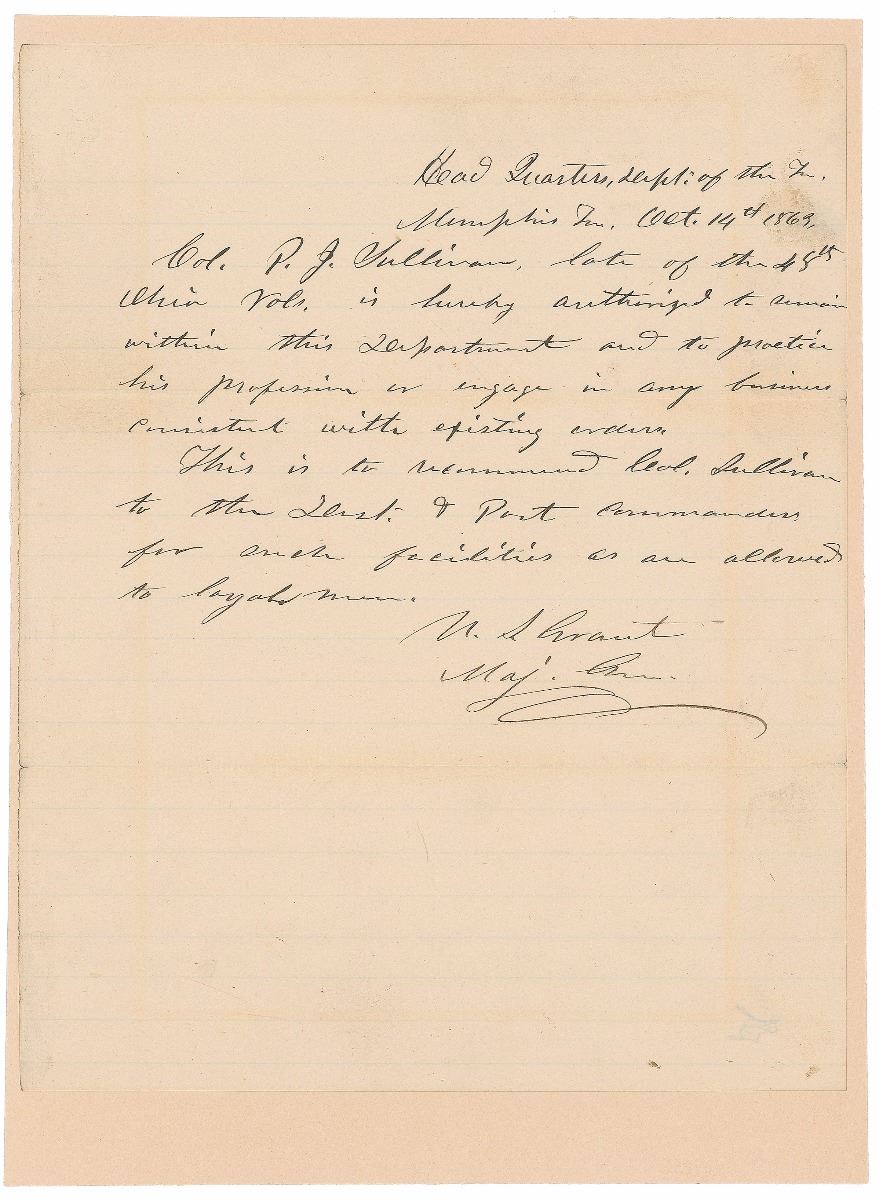 Head Quarters, Dept. of the Tn.
Memphis Tn. Oct. 14th 1863,
Col. P. J. Sullivan, late of the 48th
Ohio Vols. is hereby authorized to remain
within this Department and to practice
his profession or engage in any business
consistent with existing orders.
This is to recommend Col. Sullivan
to the Dist. & Post commanders
for such facilities as are allowed
to loyal men.
U. S. Grant
Maj. Gen.